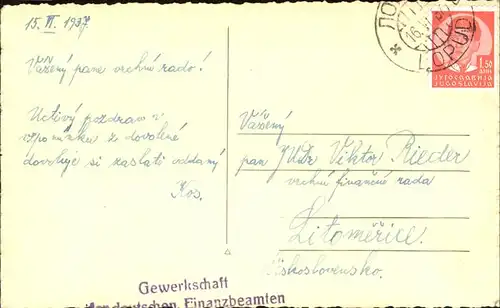 15. VI. 1937
Vážený pane vrchní rado!
Uctivý pozdrav a
vzpomínku z dovolené
dovoluje si zaslati oddaný
Kos.
ЛО
16. VI
LOPUD
1.50
ДИН
ЈУГОСЛАВИЈА
JUGOSLAVIJA
Vážený
pan JUDr Viktor Rieder
vrchní finanční rada
Litoměřice.
Československo.
Gewerkschaft
deutschen Finanzbeamten